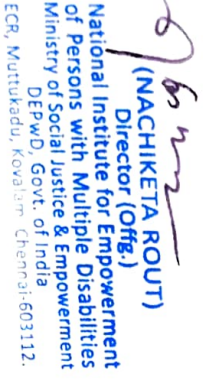 (NACHIKETA ROUT)
Director (Offg.)
National Institute for Empowerment
of Persons with Multiple Disabilities
Ministry of Social Justice & Empowerment
DEPwD, Govt. of India
ECR, Muttukadu, Kovalam Chennai-603112.